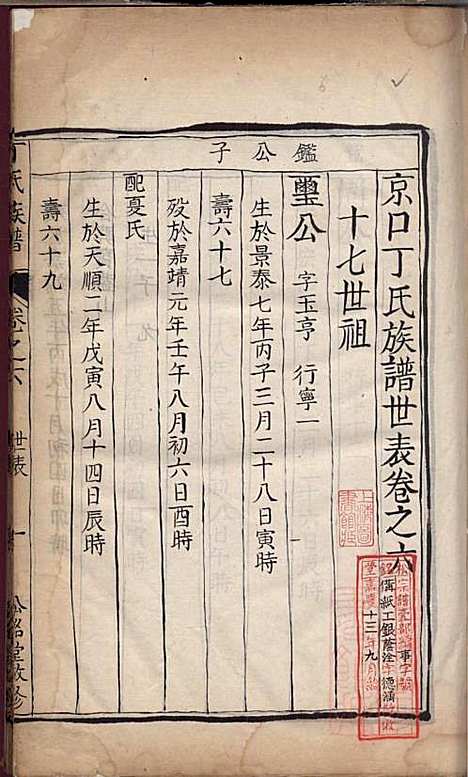 京口丁氏族譜世表卷之六
十七世祖
鑑公子
璽公 字玉亨 行寧一
生於景泰七年丙子三月二十八日寅時
歿於嘉靖元年壬午八月初六日酉時
壽六十七
配夏氏
生於天順二年戊寅八月十四日辰時
壽六十九
丁氏族譜 卷之六 世表 一
上海圖書館藏
宗譜
備紙工銀
十三年九月